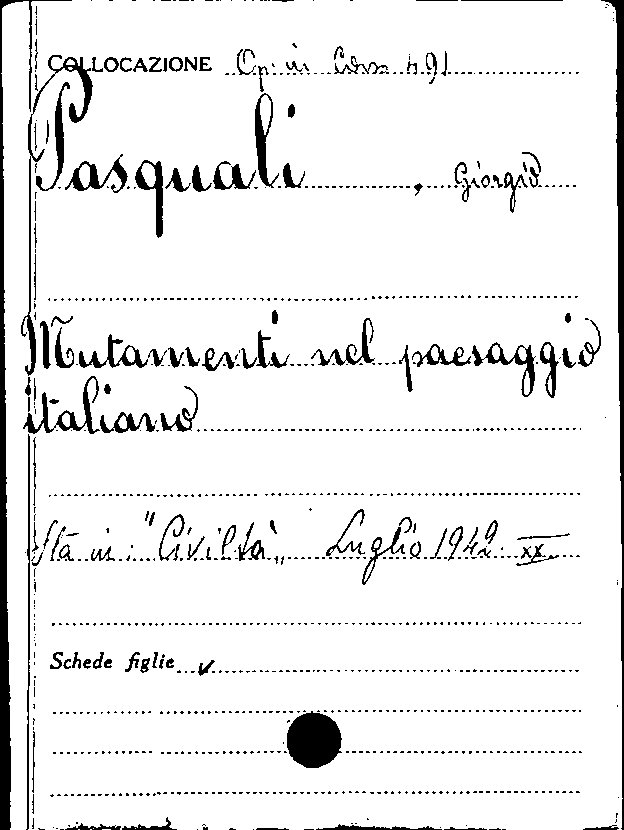 COLLOCAZIONE Op. in Cons 491
Pasquali, Giorgio
Mutamenti nel paesaggio
italiano
Sta in: "Civiltà„ Luglio 1942 XX
Schede figlie ✓